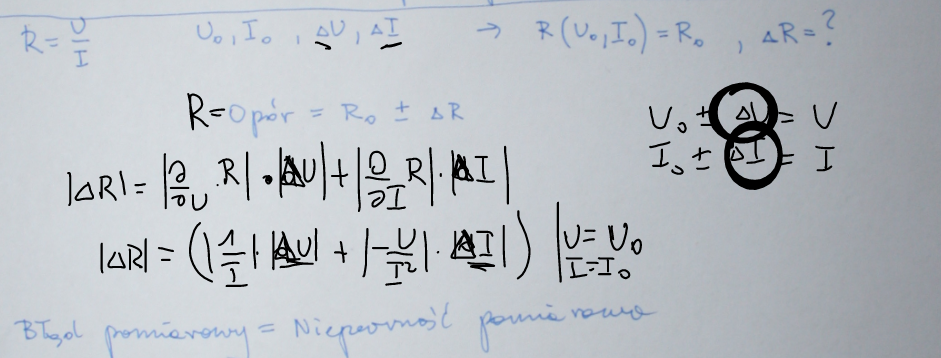 R = U/I    U₀, I₀, ΔU, ΔI → R(U₀, I₀) = R₀, ΔR = ?
R = Opór = R₀ ± ΔR
U₀ ± ΔU = U
I₀ ± ΔI = I
|ΔR| = |∂/∂U · R| · |ΔU| + |∂/∂I R| · |ΔI|
|ΔR| = (|1/I| · |ΔU| + |-U/I²| · |ΔI|) | U = U₀ I = I₀
Błąd pomiarowy = Niepewność pomiarowa